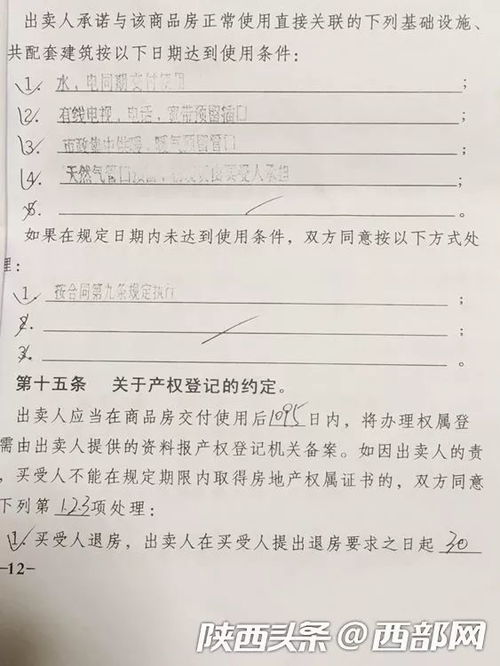 出卖人承诺与该商品房正常使用直接关联的下列基础设施、
共配套建筑按以下日期达到使用条件：
1. 水，电同期交付使用；
2. 有线电视，电话，宽带预留插口；
3. 市政集中供暖，暖气预留管口；
4. 天然气管口预留，买受人承担；
5. 。
如果在规定日期内未达到使用条件，双方同意按以下方式处
理：
1. 按合同第九条规定执行；
2. ；
3. 。
第十五条 关于产权登记的约定。
出卖人应当在商品房交付使用后1095日内，将办理权属登
需由出卖人提供的资料报产权登记机关备案。如因出卖人的责
，买受人不能在规定期限内取得房地产权属证书的，双方同意
下列第1.2.3项处理：
1. 买受人退房，出卖人在买受人提出退房要求之日起 30
-12-
陕西头条@西部网